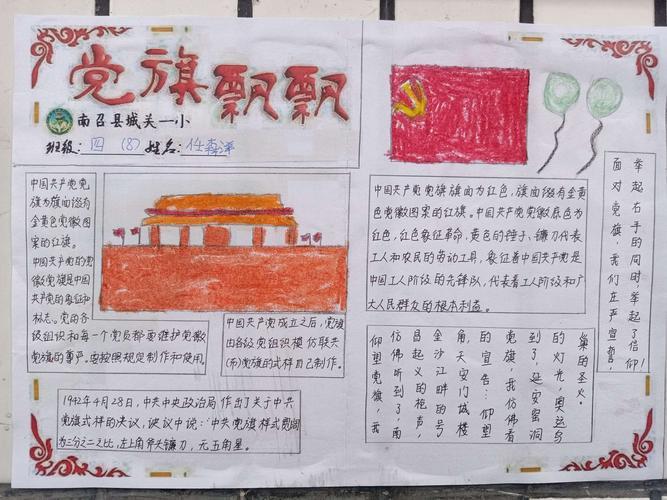 党旗飘飘
南召县城关一小
班级:四 (8) 姓名:任森
中国共产党党
旗为旗面缀有
金黄色党徽图
案的红旗。
中国共产党的党
徽党旗是中国
共产党的象征和
标志。党的各
级组织和每一个党员都要维护党徽
党旗的尊严。要按照规定制作和使用。
中国共产党成立之后,党旗
由各级党组织模仿联共
(布)党旗的式样自己制作。
1942年4月28日,中共中央政治局作出了关于中共
党旗式样的决议,决议中说:“中共党旗式样宽阔
为三分之二之比,左上角斧头镰刀,元五角星。
中国共产党党旗旗面为红色,旗面缀有金黄
色党徽图案的红旗。中国共产党党徽底色为
红色,红色象征革命,黄色的锤子、镰刀代表
工人和农民的劳动工具,象征着中国共产党是
中国工人阶级的先锋队,代表着工人阶级和广
大人民群众的根本利益。
仰望党旗,我
仿佛听到了,南
昌起义的枪声,
金沙江畔的号
角,天安门城楼
的宣告:仰望
党旗,我仿佛看
到了,延安窑洞
的灯光,奥运鸟
巢的圣火。
面对党旗,我们庄严宣誓,
举起右手的同时,举起了信仰!